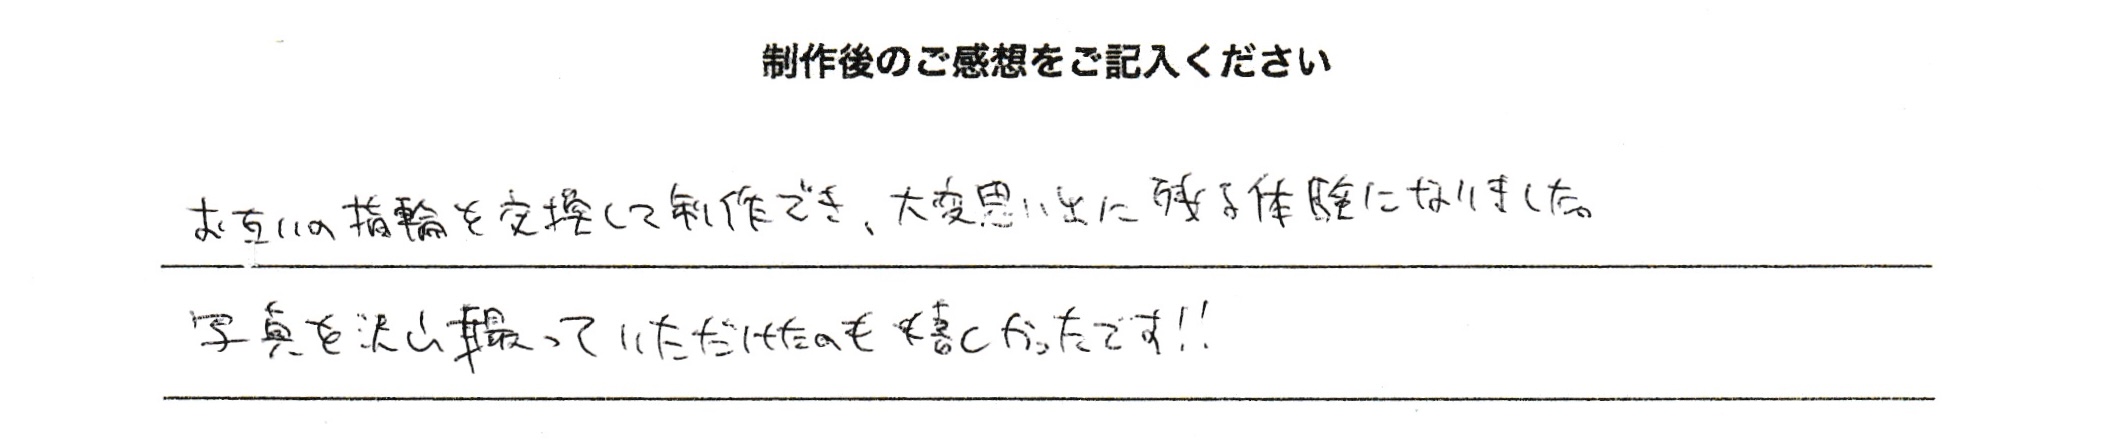 制作後のご感想をご記入ください
お互いの指輪を交換して制作でき、大変思い出に残る体験になりました。
写真を沢山撮っていただけたのも嬉しかったです!!